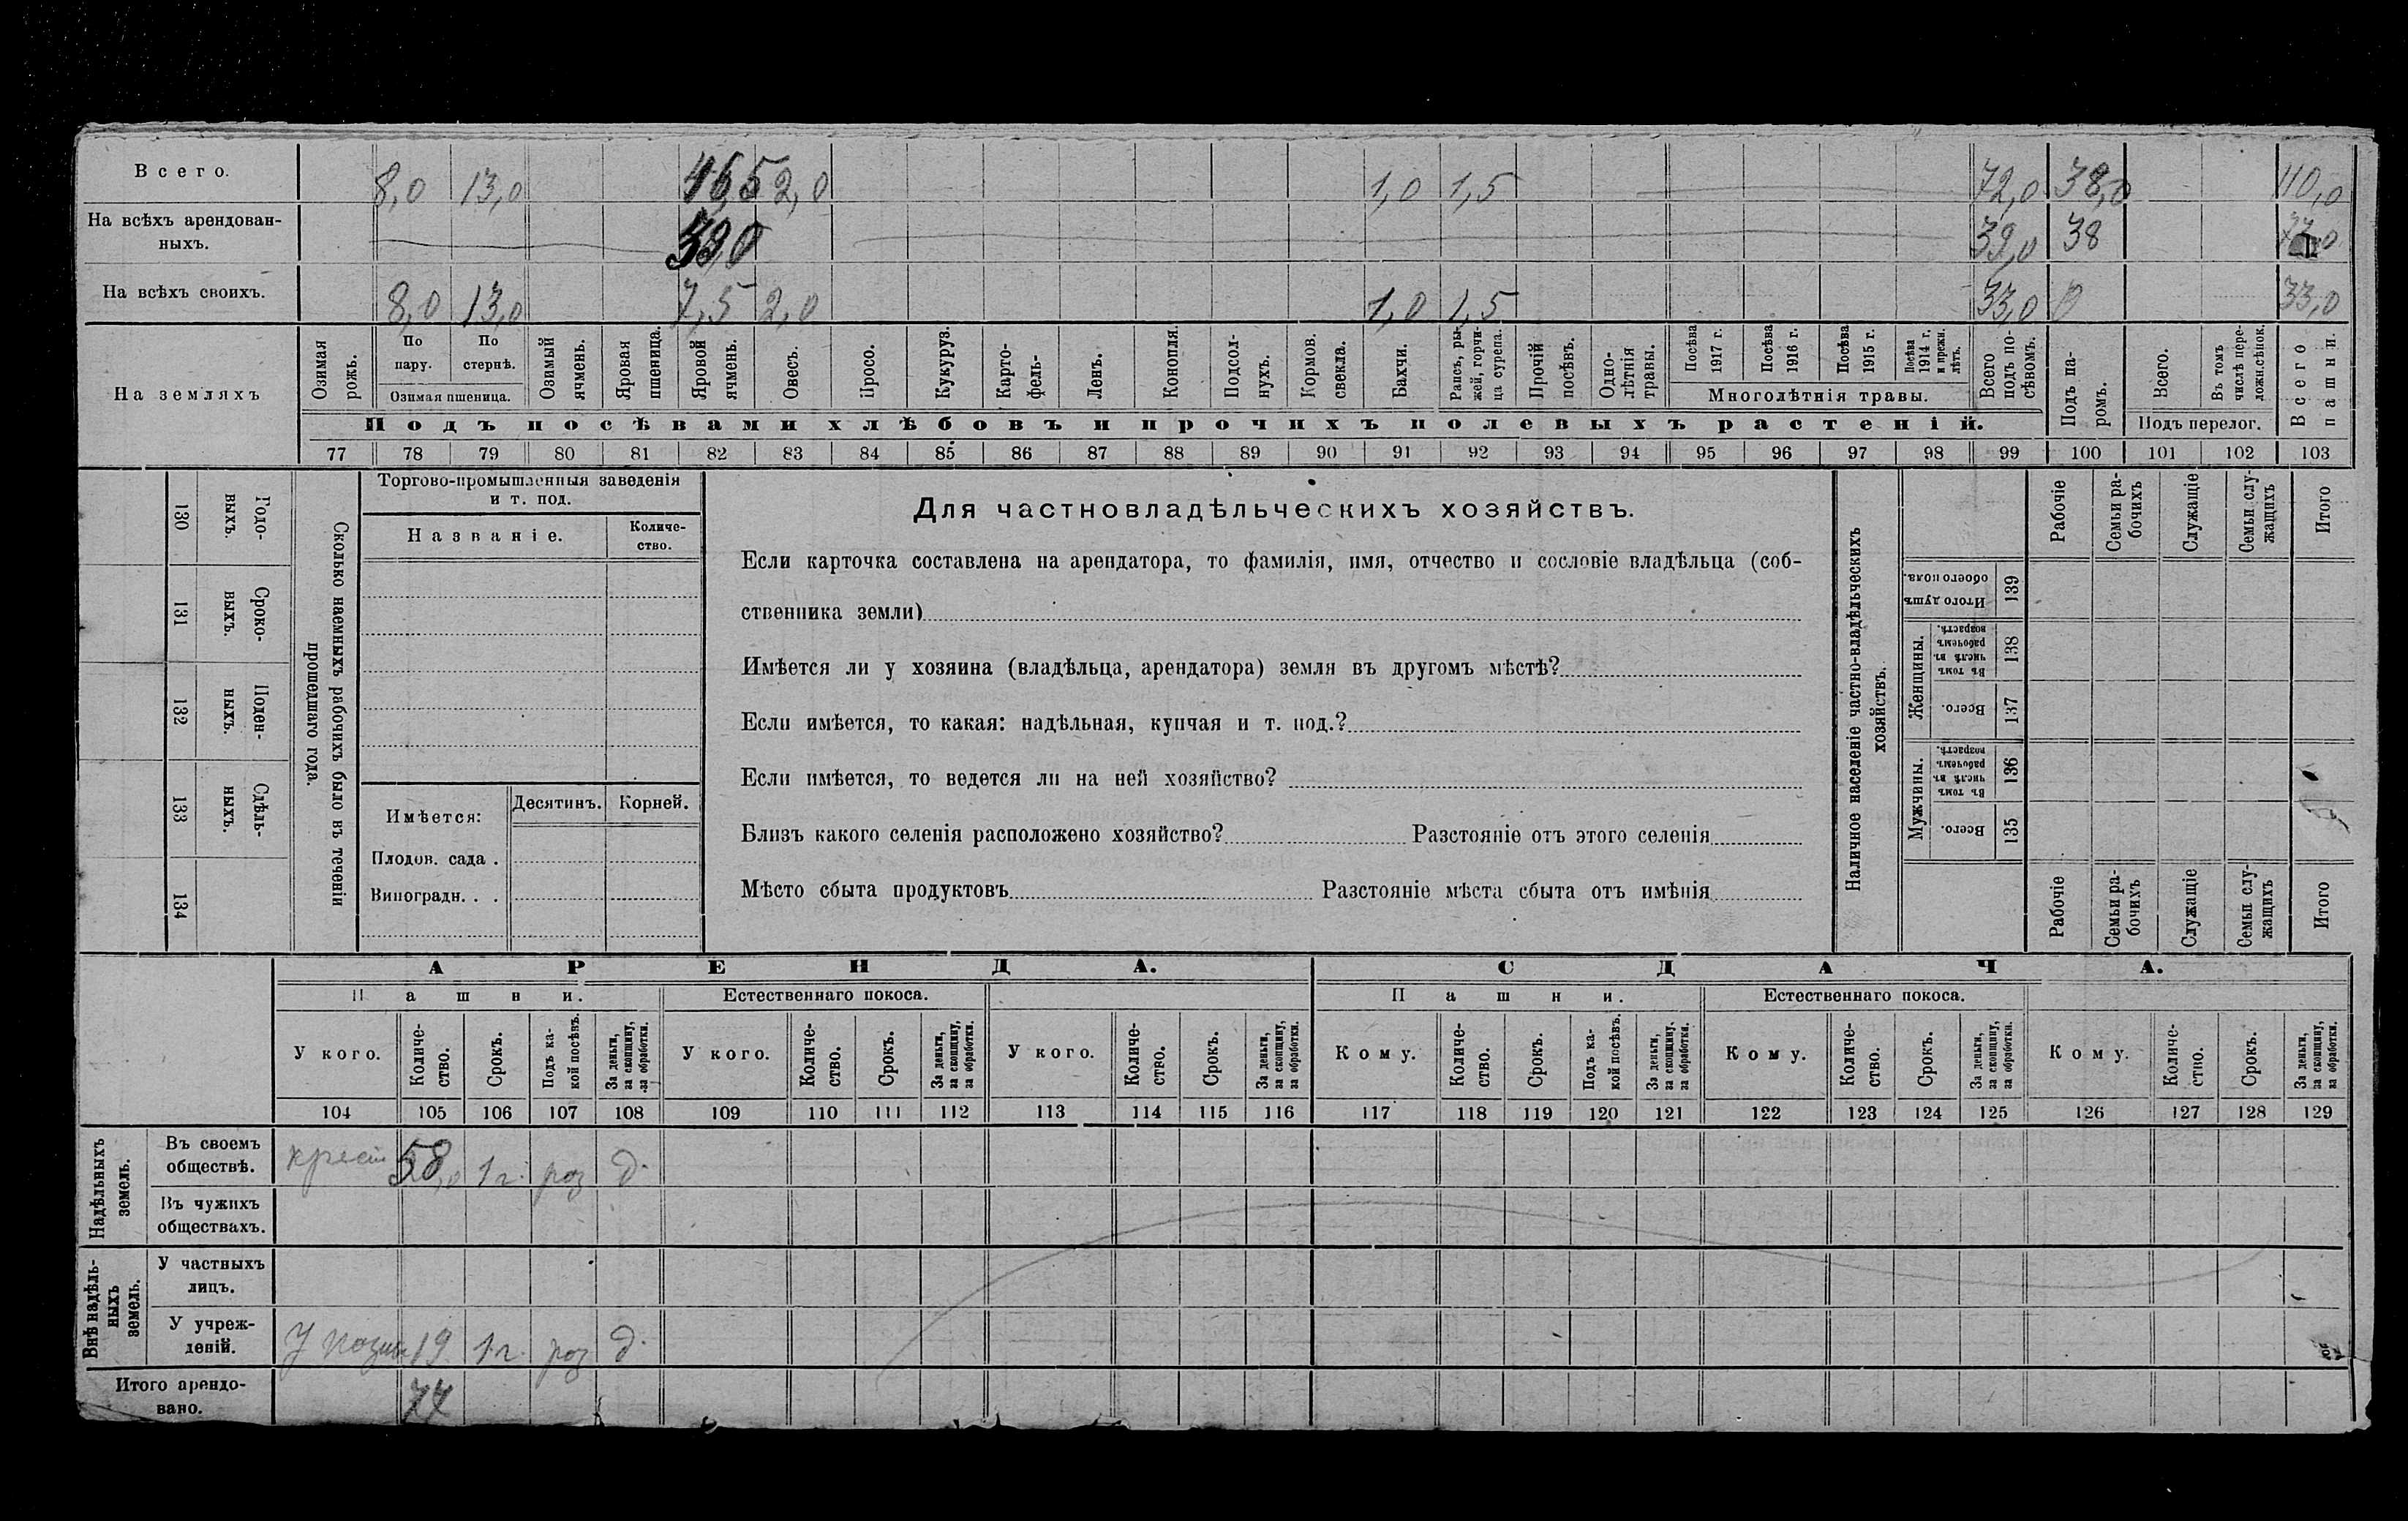 Всего. 8,0 13,0 46,5 2,0 1,0 1,5 72,0 38,0 110,0
На всѣхъ арендован-
ныхъ. 39,0 39,0 38
На всѣхъ своихъ. 8,0 13,0 7,5 2,0 1,0 1,5 33,0 0 33,0
На земляхъ
Озимая рожь.
По пару.
По стернѣ.
Озимая пшеница.
Озимый ячмень.
Яровая пшеница.
Яровой ячмень.
Овесъ.
Просо.
Кукуруз.
Карто-
фель-
Ленъ.
Конопля.
Подсол-
нухъ.
Кормов.
свекла.
Бахчи.
Рапсъ, ры-
жей, горчи-
ца сурепа.
Прочій посѣвъ.
Одно-
лѣтнія
травы.
Посѣва 1917 г.
Посѣва 1916 г.
Посѣва 1915 г.
Посѣва 1914 г. и прежн. лѣтъ.
Многолѣтнія травы.
Всего подъ по-
сѣвомъ.
Подъ па-
ромъ.
Всего.
Въ томъ числѣ пере-
ложн.сѣнок.
Подъ перелог.
Всего пашни.
Подъ посѣвами хлѣбовъ и прочихъ полевыхъ растеній.
77 78 79 80 81 82 83 84 85 86 87 88 89 90 91 92 93 94 95 96 97 98 99 100 101 102 103
130 Годо-
выхъ.
131 Сроко-
выхъ.
132 Поден-
ныхъ.
133 Сдѣль-
ныхъ.
134
Сколько наемныхъ рабочихъ было въ теченіи
прошедшаго года.
Торгово-промышленныя заведенія
и т. под.
Названіе.
Количе-
ство.
Имѣется:
Десятинъ. Корней.
Плодов. сада .
Виноградн. . .
Для частновладѣльческихъ хозяйствъ.
Если карточка составлена на арендатора, то фамилія, имя, отчество и сословіе владѣльца (соб-
ственника земли)
Имѣется ли у хозяина (владѣльца, арендатора) земля въ другомъ мѣстѣ?
Если имѣется, то какая: надѣльная, купчая и т. под.?
Если имѣется, то ведется ли на ней хозяйство?
Близъ какого селенія расположено хозяйство? Разстояніе отъ этого селенія
Мѣсто сбыта продуктовъ Разстояніе мѣста сбыта отъ имѣнія
Наличное населеніе частно-владѣльческихъ
хозяйствъ.
Рабочіе
Семьи ра-
бочихъ
Служащіе
Семьи слу-
жащихъ
Итого
Итого душъ обоего пола. 139
Женщины.
Въ томъ числѣ въ рабочемъ возрастѣ. 138
Всего. 137
Мужчины.
Въ томъ числѣ въ рабочемъ возрастѣ. 136
Всего. 135
Рабочіе
Семьи ра-
бочихъ
Служащіе
Семьи слу-
жащихъ
Итого
АРЕНДА. СДАЧА.
Пашни. Естественнаго покоса. Пашни. Естественнаго покоса.
У кого.
Количе-
ство.
Срокъ.
Подъ ка-
кой посѣвъ.
За деньги,
за скопщину,
за обработки.
У кого.
Количе-
ство.
Срокъ.
За деньги,
за скопщину,
за обработки.
У кого.
Количе-
ство.
Срокъ.
За деньги,
за скопщину,
за обработки.
Кому.
Количе-
ство.
Срокъ.
Подъ ка-
кой посѣвъ.
За деньги,
за скопщину,
за обработки.
Кому.
Количе-
ство.
Срокъ.
За деньги,
за скопщину,
за обработки.
Кому.
Количе-
ство.
Срокъ.
За деньги,
за скопщину,
за обработки.
104 105 106 107 108 109 110 111 112 113 114 115 116 117 118 119 120 121 122 123 124 125 126 127 128 129
Надѣльныхъ
земель.
Въ своемъ
обществѣ. крест 58,0 1 г. роз д.
Въ чужихъ
обществахъ.
Внѣ надѣль-
ныхъ
земель.
У частныхъ
лицъ.
У учреж-
деній. У казны 19 1 г. роз д.
Итого арендо-
вано. 77